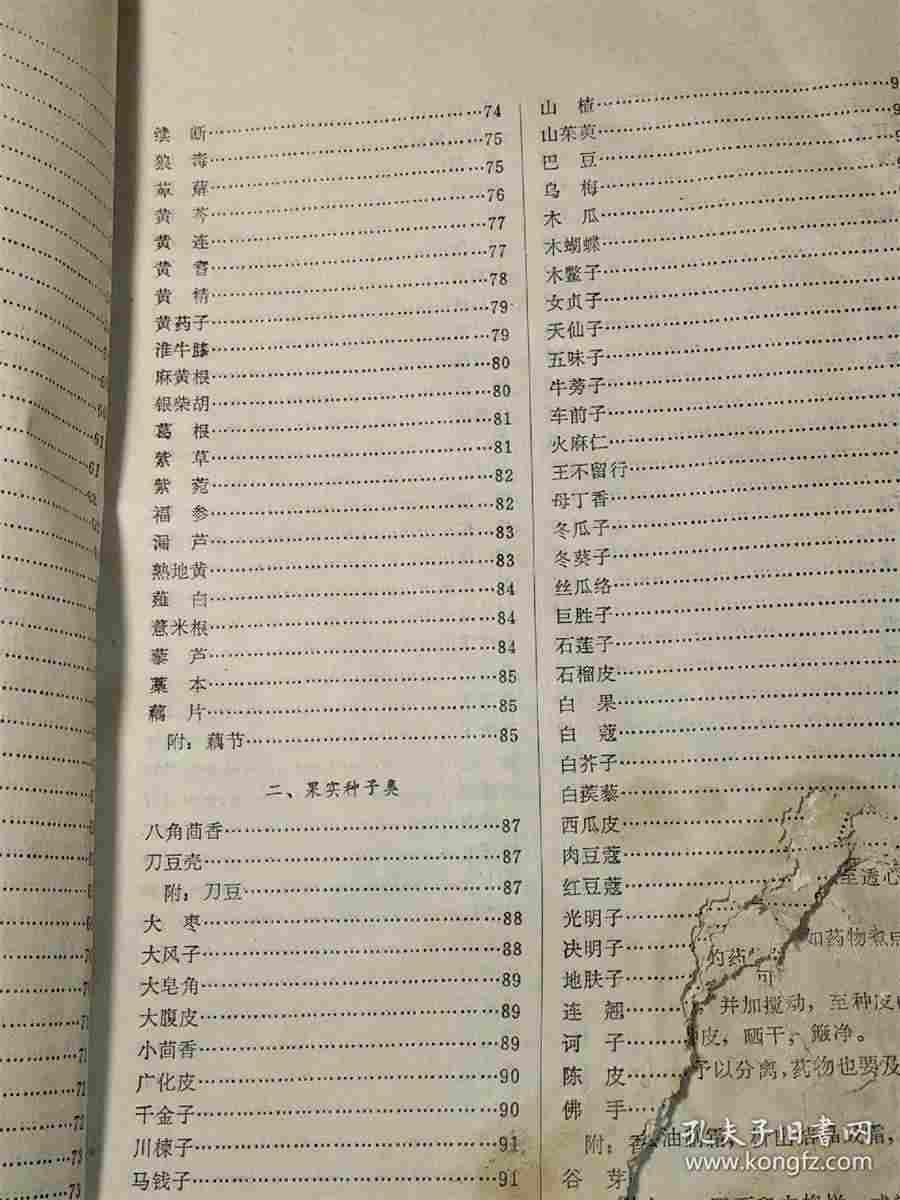 续　断……74
狼　毒……75
萆　薢……75
黄　芩……76
黄　连……77
黄　耆……77
黄　精……78
黄药子……79
淮牛膝……79
麻黄根……80
银柴胡……80
葛　根……81
紫　草……81
紫　菀……82
福　参……82
漏　芦……83
熟地黄……83
薤　白……84
薏米根……84
藜　芦……84
藁　本……85
藕　片……85
附：藕节……85
二、果实种子类
八角茴香……87
刀豆壳……87
附：刀豆……87
大　枣……88
大风子……88
大皂角……89
大腹皮……89
小茴香……89
广化皮……90
千金子……90
川楝子……91
马钱子……91
山　楂……9
山茱萸……9
巴　豆……
乌　梅……
木　瓜……
木蝴蝶……
木鳖子……
女贞子……
天仙子……
五味子……
牛蒡子……
车前子……
火麻仁……
王不留行……
母丁香……
冬瓜子……
冬葵子……
丝瓜络……
巨胜子……
石莲子……
石榴皮……
白　果……
白　蔻……
白芥子……
白蒺藜……
西瓜皮……
肉豆蔻……
红豆蔻……至透心
光明子……
决明子……如药物煮
地肤子……的药　可
连　翘……，并加搅动，至种皮
诃　子……皮，晒干，簸净。
陈　皮……予以分离，药物也要及
佛　手……
附：香
谷　芽
孔夫子旧书网
www.kongfz.com